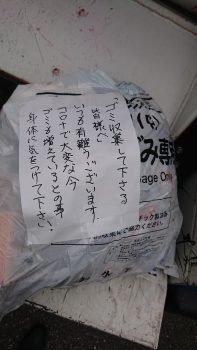 「ゴミ収集して下さる
皆様へ」
いつも有難うございます。
コロナで大変な今
ゴミも増えているとの事
身体に気をつけて下さい。
ごみ専
bage Only